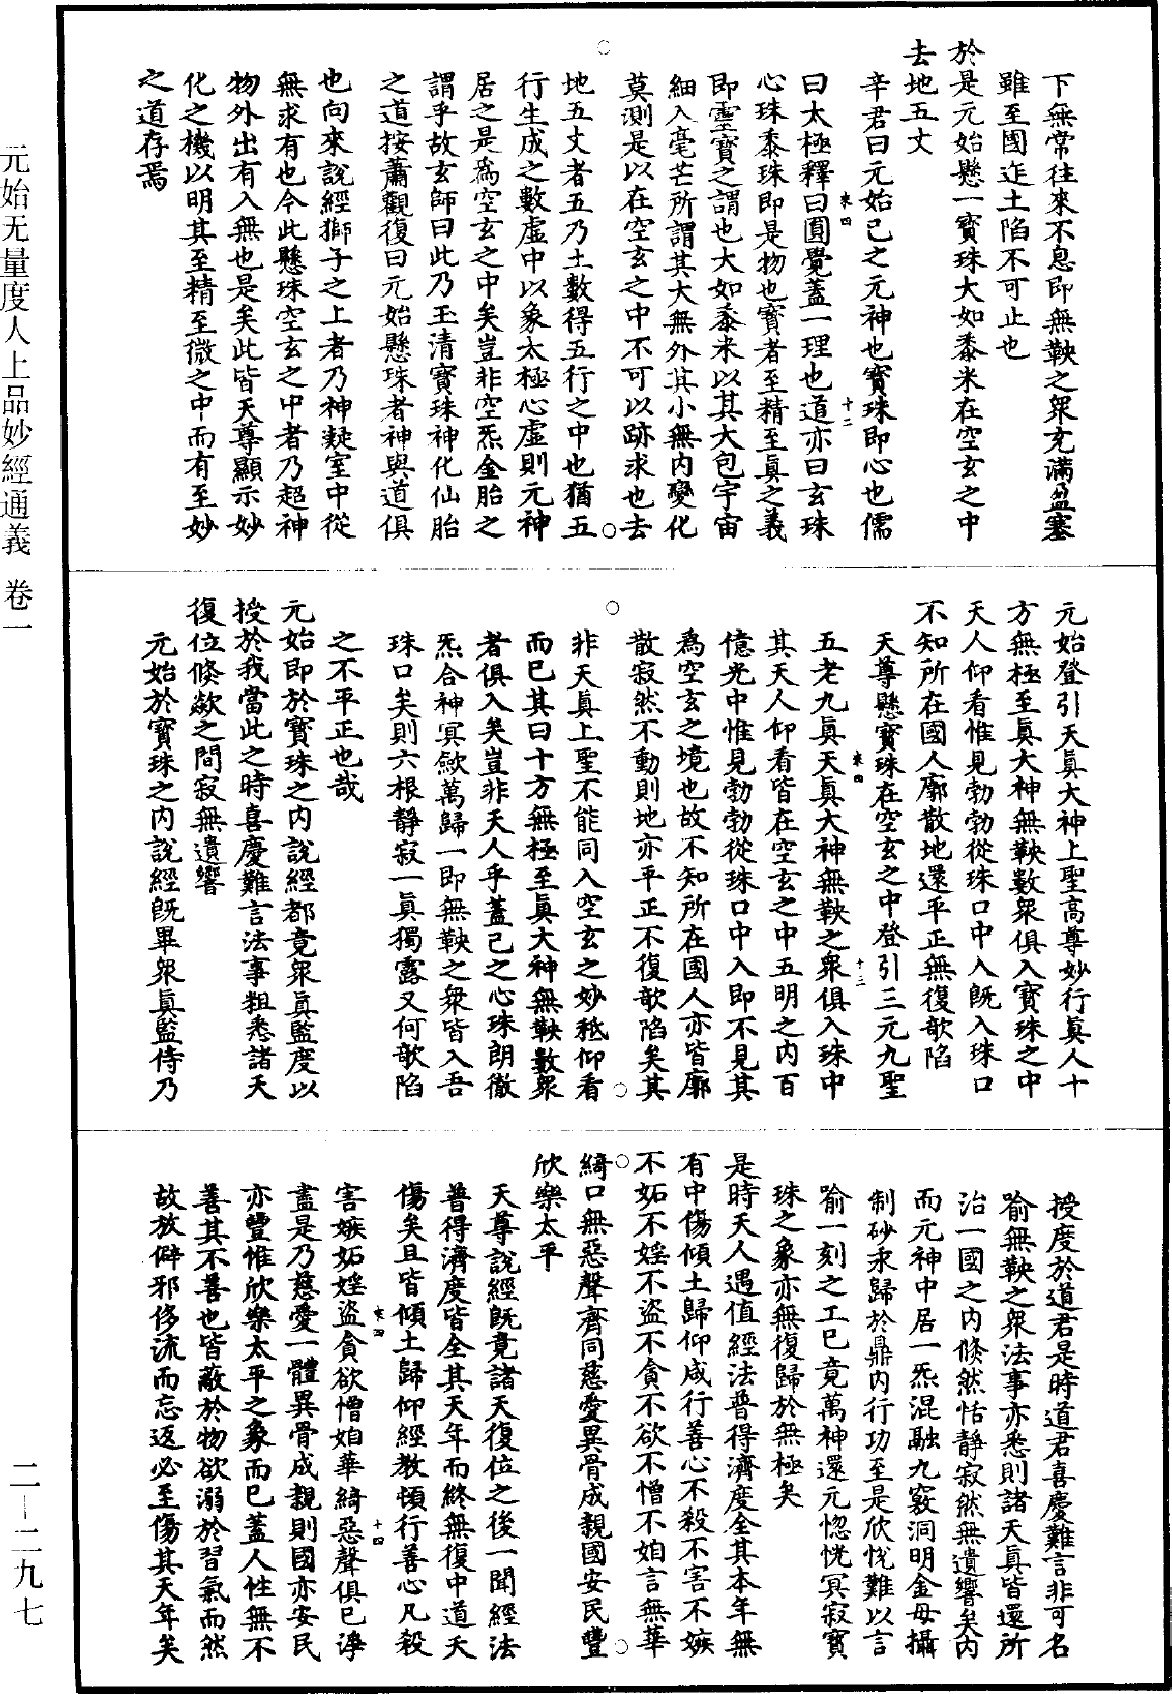 下無常往來不息即無鞅之衆充滿盈塞
雖至國迮土陷不可止也
於是元始懸一寳珠大如黍米在空玄之中
去地五丈
辛君曰元始已之元神也寳珠即心也儒
曰太極釋曰圓覺蓋一理也道亦曰玄珠
心珠黍珠即是物也寳者至精至眞之義
即靈寳之謂也大如黍米以其大包宇宙
細入毫芒所謂其大無外其小無內變化
莫測是以在空玄之中不可以跡求也去
地五丈者五乃土數得五行之中也猶五
行生成之數虛中以象太極心虛則元神
居之是爲空玄之中矣豈非空炁金胎之
謂乎故玄師曰此乃玉清寳珠神化仙胎
之道按蕭觀復曰元始懸珠者神與道俱
也向來說經獅子之上者乃神凝室中從
無求有也今此懸珠空玄之中者乃超神
物外出有入無也是矣此皆天尊顯示妙
化之機以明其至精至微之中而有至妙
之道存焉
元始登引天眞大神上聖高尊妙行眞人十
方無極至眞大神無鞅數衆俱入寳珠之中
天人仰看惟見勃勃從珠口中入既入珠口
不知所在國人廓散地還平正無復欹陷
天尊懸寳珠在空玄之中登引三元九聖
五老九眞天眞大神無鞅之衆俱入珠中
其天人仰看皆在空玄之中五明之內百
億光中惟見勃勃從珠口中入即不見其
爲空玄之境也故不知所在國人亦皆廓
散寂然不動則地亦平正不復欹陷矣其
非天眞上聖不能同入空玄之妙秪仰看
而已其曰十方無極至眞大神無鞅數衆
者俱入矣豈非天人乎蓋已之心珠朗徹
炁合神冥歛萬歸一即無鞅之衆皆入吾
珠口矣則六根靜寂一眞獨露又何欹陷
之不平正也哉
元始即於寳珠之內說經都竟衆眞監度以
授於我當此之時喜慶難言法事粗悉諸天
復位倐歘之間寂無遺響
元始於寳珠之內說經旣畢衆眞監侍乃
授度於道君是時道君喜慶難言非可名
喻無鞅之衆法事亦悉則諸天眞皆還所
治一國之內倐然恬靜寂然無遺響矣内
而元神中居一炁混融九竅洞明金母攝
制砂汞歸於鼎内行功至是欣悅難以言
喻一刻之工已竟萬神還元惚恍冥寂寳
珠之象亦無復歸於無極矣
是時天人遇值經法普得濟度全其本年無
有中傷傾土歸仰咸行善心不殺不害不嫉
不妬不婬不盜不貪不欲不憎不㚰言無華
綺口無惡聲齊同慈愛異骨成親國安民豐
欣樂太平
天尊說經既竟諸天復位之後一聞經法
普得濟度皆全其天年而終無復中道夭
傷矣且皆傾土歸仰經教頓行善心凡殺
害嫉妬婬盜貪欲憎㚰華綺惡聲俱已諍
盡是乃慈愛一體異骨成親則國亦安民
亦豐惟欣樂太平之象而已蓋人性無不
善其不善也皆蔽於物欲溺於習氣而然
故放僻邪侈流而忘返必至傷其天年矣
來四
十二
來四
十三
來四
十四
元始无量度人上品妙經通義 卷一
二—二九七